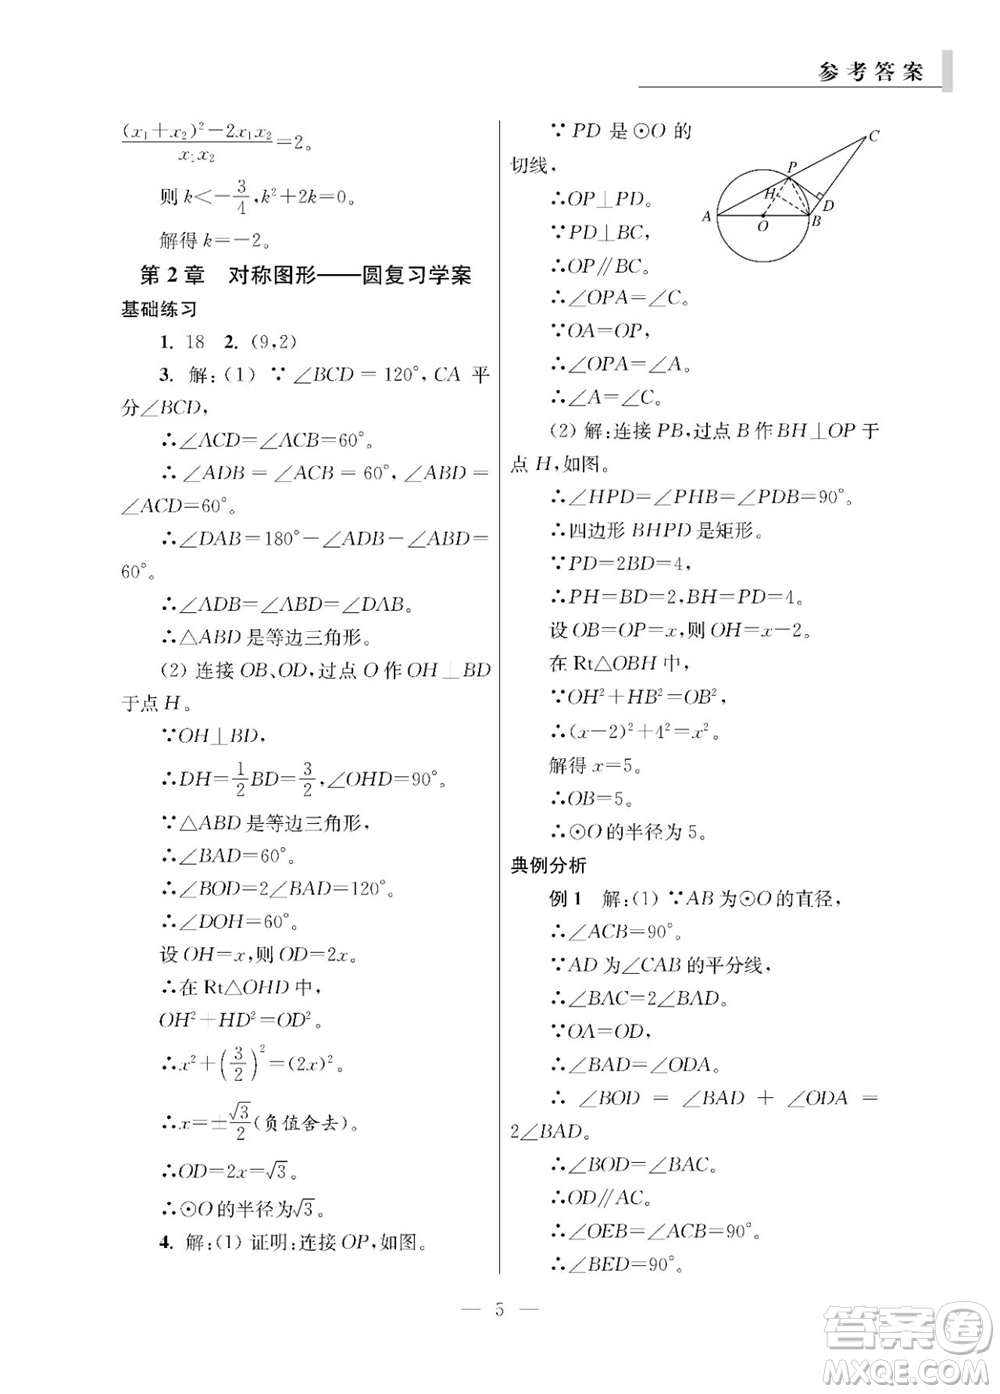 参考答案
(x₁+x₂)²-2x₁x₂/x₁x₂=2。
则 k<-3/4,k²+2k=0。
解得 k=-2。
第 2 章 对称图形——圆复习学案
基础练习
1. 18 2. (9,2)
3. 解:(1) ∵∠BCD=120°,CA 平
分∠BCD,
∴∠ACD=∠ACB=60°。
∴∠ADB=∠ACB=60°,
∠ACD=60°。
∴∠DAB=180°-∠ADB-∠ABD=
60°。
∴∠ADB=∠ABD=∠DAB。
∴△ABD 是等边三角形。
(2) 连接 OB、OD,过点 O 作 OH⊥BD
于点 H。
∵OH⊥BD,
∴DH=1/2BD=3/2,∠OHD=90°。
∵△ABD 是等边三角形,
∴∠BAD=60°。
∴∠BOD=2∠BAD=120°。
∴∠DOH=60°。
设 OH=x,则 OD=2x。
∴在 Rt△OHD 中,
OH²+HD²=OD²。
∴x²+(3/2)²=(2x)²。
∴x=±√3/2(负值舍去)。
∴OD=2x=√3。
∴⊙O 的半径为√3。
4. 解:(1) 证明:连接 OP,如图。
∵PD 是⊙O 的
切线,
∴OP⊥PD。
∵PD⊥BC,
∴OP∥BC。
∴∠OPA=∠C。
∵OA=OP,
∴∠OPA=∠A。
∴∠A=∠C。
C
P
H
D
A
O
B
(2) 解:连接 PB,过点 B 作 BH⊥OP 于
点 H,如图。
∴∠HPD=∠PHB=∠PDB=90°。
∴四边形 BHPD 是矩形。
∵PD=2BD=4,
∴PH=BD=2,BH=PD=4。
设 OB=OP=x,则 OH=x-2。
在 Rt△OBH 中,
∵OH²+HB²=OB²,
∴(x-2)²+4²=x²。
解得 x=5。
∴OB=5。
∴⊙O 的半径为 5。
典例分析
例 1 解:(1) ∵AB 为⊙O 的直径,
∴∠ACB=90°。
∵AD 为∠CAB 的平分线,
∴∠BAC=2∠BAD。
∵OA=OD,
∴∠BAD=∠ODA。
∴∠BOD=∠BAD+∠ODA=
2∠BAD。
∴∠BOD=∠BAC。
∴OD∥AC。
∴∠OEB=∠ACB=90°。
∴∠BED=90°。
— 5 —
答案圈
MXQE.COM